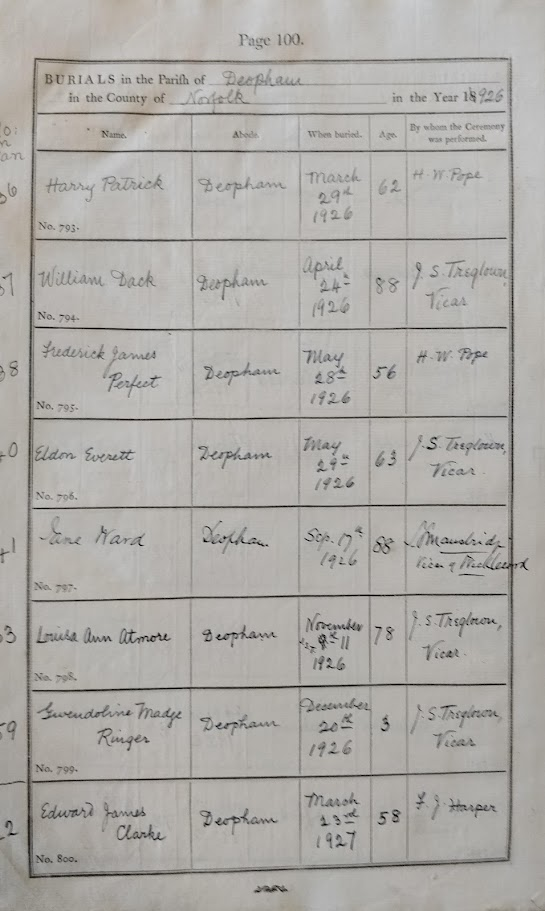 Page 100.
BURIALS in the Parish of Deopham
in the County of Norfolk in the Year 18926
Name. Abode. When buried. Age. By whom the Ceremony was performed.
Harry Patrick Deopham March 29th 1926 62 H. W. Pope
No. 793.
William Dack Deopham April 24th 1926 88 J. S. Treglown, Vicar
No. 794.
Frederick James Perfect Deopham May 28th 1926 56 H. W. Pope
No. 795.
Eldon Everett Deopham May 29th 1926 63 J. S. Treglown, Vicar.
No. 796.
Jane Ward Deopham Sep. 17th 1926 88 Vicar of
No. 797.
Louisa Ann Atmore Deopham November 11 1926 78 J. S. Treglown, Vicar.
No. 798.
Gwendoline Madge Ringer Deopham December 20th 1926 3 J. S. Treglown, Vicar
No. 799.
Edward James Clarke Deopham March 23rd 1927 58 F. J. Harper
No. 800.